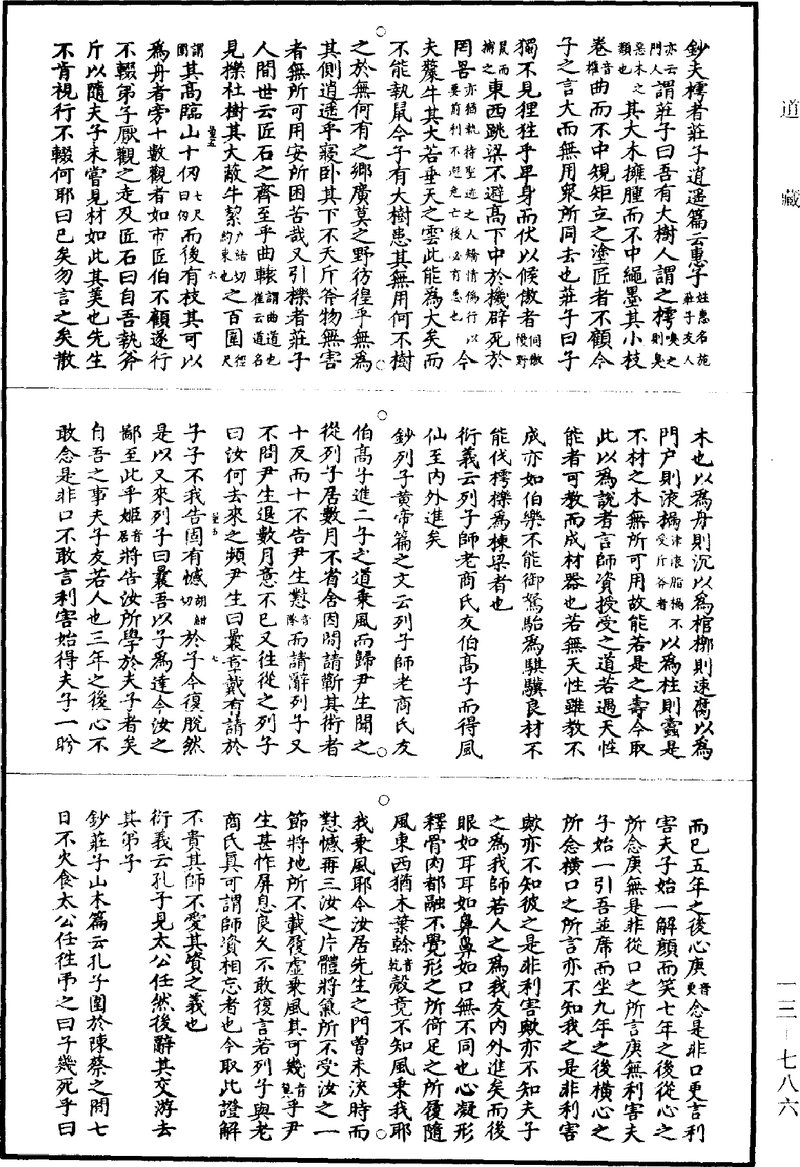 道藏
鈔夫樗者莊子逍遥篇云惠子姓惠名施莊子友人
亦云門人謂莊子曰吾有大樹人謂之樗嗅之則臭
惡木之類也其大木擁腫而不中繩墨其小枝
卷音權曲而不中䂓矩立之塗匠者不顧今
子之言大而無用衆所同去也莊子曰子
獨不見狸狌乎卑身而伏以候傲者伺慠慢野
鼠而捕之東西跳梁不避髙下中於機辟死於
罔罟亦猶執持聖迹之人矯情偽行以要前利不避危亡後必有患也今
夫𣯛牛其大若垂天之雲此能為大矣而
不能執鼠今子有大樹患其無用何不樹
之於無何有之鄉廣莫之野彷徨乎無為
其側逍遥乎寢卧其下不夭斤斧物無害
者無所可用安所困苦哉又引櫟者莊子
人間世云匠石之齊至乎曲轅謂曲道也崔云道名
見櫟社樹其大蔽牛絜户結切約束也之百圍徑尺
謂圍其髙臨山十仞七尺曰仞而後有枝其可以
為舟者旁十數觀者如市匠伯不顧遂行
不輟弟子厭觀之走及匠石曰自吾執斧
斤以隨夫子未嘗見材如此其美也先生
不肯視行不輟何耶曰已矣勿言之矣散
木也以為舟則沉以為棺槨則速腐以為
門户則液樠津液脂樠不受斤斧者以為柱則蠹是
不材之木無所可用故能若是之壽今取
此以為說者言師資授受之道若遇天性
能者可教而成材器也若無天性雖教不
成亦如伯樂不能御駑駘為騏驥良材不
能伐樗櫟為棟梁者也
衍義云列子師老商氏友伯髙子而得風
仙至内外進矣
鈔列子黄帝篇之文云列子師老商氏友
伯髙子進二子之道乘風而歸尹生聞之
從列子居數月不省舍因間請蘄其術者
十反而十不告尹生懟音隊而請辭列子又
不問尹生退數月意不已又往從之列子
曰汝何去來之頻尹生曰曩章戴有請於
子子不我告固有憾胡紺切於子今復脱然
是以又來列子曰曩吾以子為達今汝之
鄙至此乎姬音居將告汝所學於夫子者矣
自吾之事夫子友若人也三年之後心不
敢念是非口不敢言利害始得夫子一眄
而已五年之後心庚音更念是非口更言利
害夫子始一解顔而笑七年之後從心之
所念庚無是非從口之所言庚無利害夫
子始一引吾並席而坐九年之後橫心之
所念橫口之所言亦不知我之是非利害
歟亦不知彼之是非利害歟亦不知夫子
之為我師若人之為我友内外進矣而後
眼如耳耳如鼻鼻如口無不同也心凝形
釋骨肉都融不覺形之所倚足之所履隨
風東西猶木葉榦音乾殼竟不知風乘我耶
我乘風耶今汝居先生之門曾未浹時而
懟憾再三汝之片體將氣所不受汝之一
節將地所不載履虛乘風其可幾音冀乎尹
生甚怍屏息良久不敢復言若列子與老
商氏真可謂師資相忘者也今取此證解
不貴其師不愛其資之義也
衍義云孔子見太公任然後辭其交游去
其弟子
鈔莊子山木篇云孔子圍於陳蔡之間七
日不火食太公任往弔之曰子幾死乎曰
一三—七八六